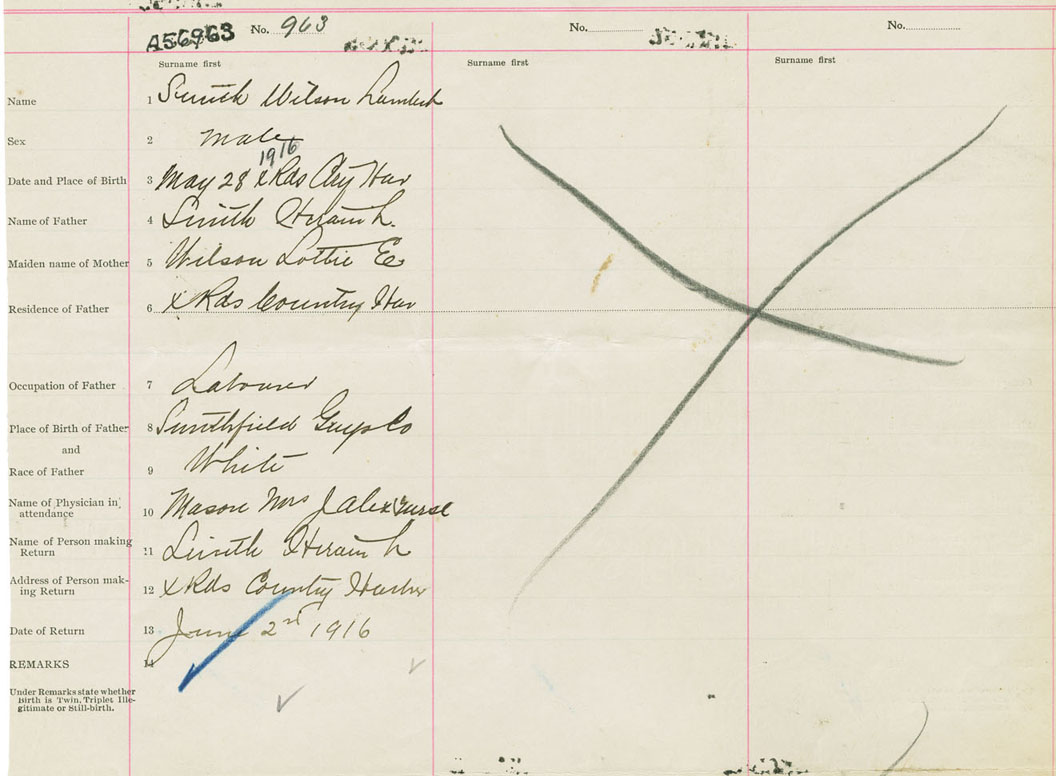 A56963 No. 963 No. No.
Surname first Surname first Surname first
Name 1 Smith Wilson Lambert
Sex 2 Male
1916
Date and Place of Birth 3 May 28 x Rds Cty Har
Name of Father 4 Smith Hiram L.
Maiden name of Mother 5 Wilson Lottie E
Residence of Father 6 x Rds Country Har
Occupation of Father 7 Labourer
Place of Birth of Father 8 Smithfield Guys Co
and
Race of Father 9 White
Name of Physician in
attendance 10 Mason Mrs J Alex Nurse
Name of Person making
Return 11 Smith Hiram L
Address of Person mak-
ing Return 12 x Rds Country Harbor
Date of Return 13 June 2nd 1916
REMARKS 14
Under Remarks state whether
Birth is Twin, Triplet Ille-
gitimate or Still-birth.